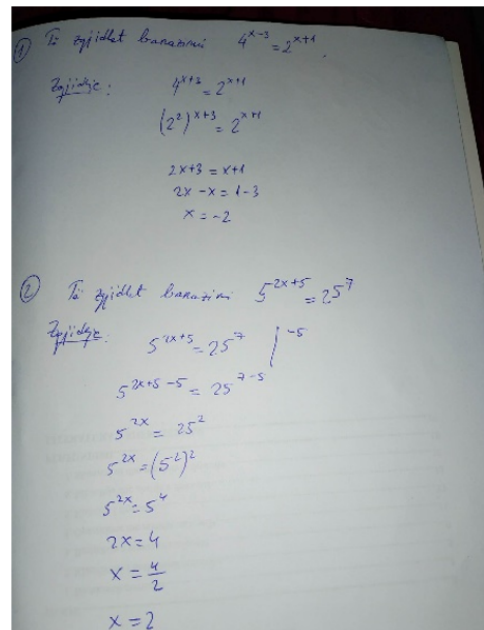 ① Të zgjidhet barazimi 4^{x-3} = 2^{x+1}.
Zgjidhje:
4^{x+3} = 2^{x+1}
(2^2)^{x+3} = 2^{x+1}
2x+3 = x+1
2x - x = 1-3
x = -2
② Të zgjidhet barazimi 5^{2x+5} = 25^7
Zgjidhje:
5^{2x+5} = 25^7 /-5
5^{2x+5-5} = 25^{7-5}
5^{2x} = 25^2
5^{2x} = (5^2)^2
5^{2x} = 5^4
2x = 4
x = 4/2
x = 2